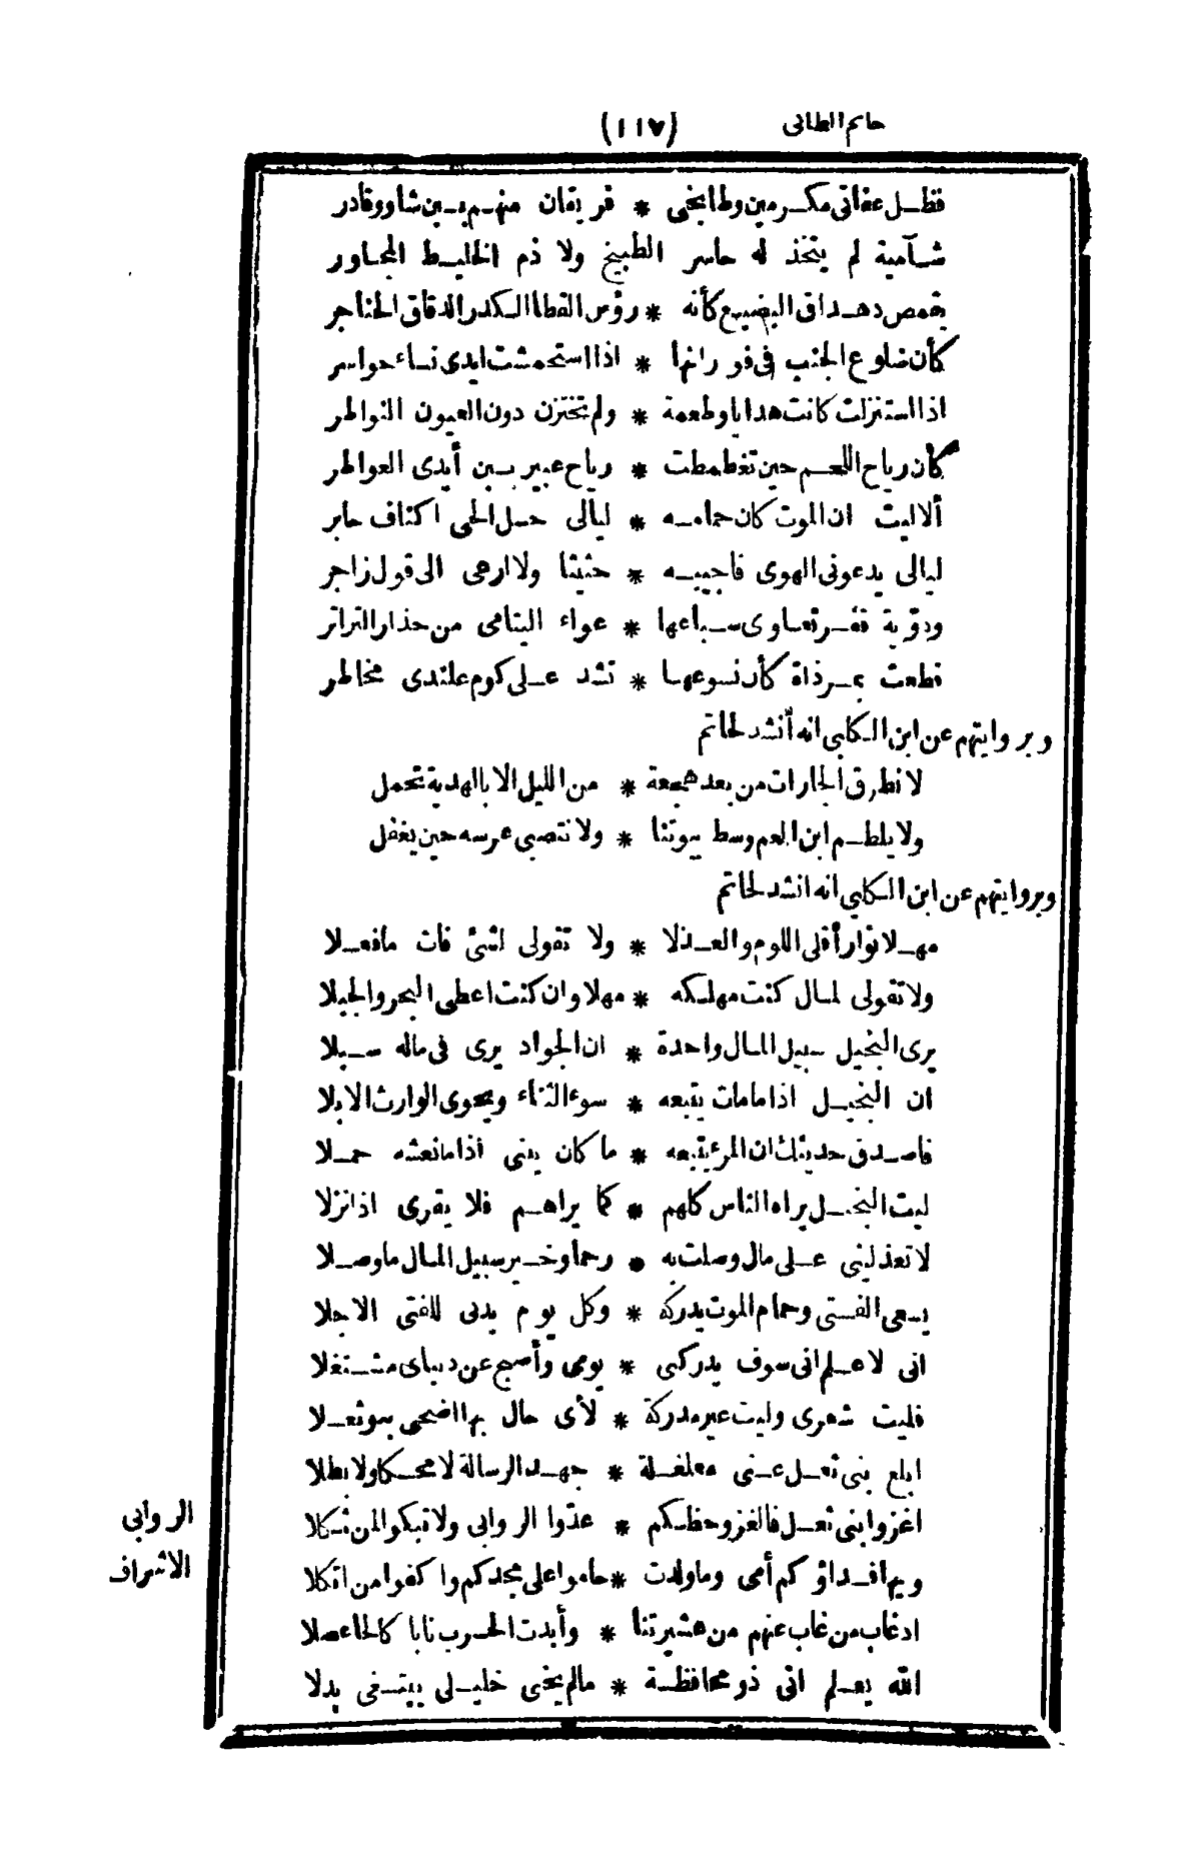 حاتم الطائى (١١٧)
فظل عفاتى مكرمين وطابخى * فريقان منهم بين شاو وقادر
شآمية لم يتخذ له حاسر الطبيخ ولا ذم الخليط المجاور
يقمص دهداق البضيع كأنه * رؤس القطا الكدر الدقاق الحناجر
كأن ضلوع الجنب فى فورانها * اذا استحمشت ايدى نساء حواسر
اذا استنزلت كانت هدايا وطعمة * ولم تختزن دون العيون النواظر
كأن رياح اللحم حين تغطمطت * رياح عبير بين أيدى العواطر
ألا ليت ان الموت كان حمامه * ليالى حل الحى اكناف حابر
ليالى يدعونى الهوى فاجيبه * حثيثا ولا ارعى الى قول زاجر
ودوّية قفر تعاوى سباعها * عواء اليتامى من حذار التراتر
قطعت بمرذاة كأن نسوعها * تشد على كوم علندى مخاطر
وبروايتهم عن ابن الكلبي انه أنشد لحاتم
لا نطرق الجارات من بعد هجعة * من الليل الا بالهدية تحمل
ولا يلطم ابن العم وسط بيوتنا * ولا نتصبى عرسه حين يغفل
وبروايتهم عن ابن الكلبي انه انشد لحاتم
مهلا نوار أقلى اللوم والعذلا * ولا تقولى لشئ فات ما فعلا
ولا تقولى لمال كنت مهلكه * مهلا وان كنت اعطى البحر والجبلا
يرى البخيل سبيل المال واحدة * ان الجواد يرى فى ماله سبلا
ان البخيل اذا مامات يتبعه * سوء الثناء ويحوى الوارث الابلا
فاصدق حديثك ان المرء يتبعه * ما كان يبنى اذا ما نعشه حملا
ليت البخيل يراه الناس كلهم * كما يراهم فلا يقرى اذا نزلا
لا تعذلينى على مال وصلت به * رحما وخير سبيل المال ما وصلا
يسعى الفتى وحمام الموت يدركه * وكل يوم يدنى للفتى الاجلا
انى لاعلم انى سوف يدركنى * يومى وأصبح عن دنياى مشتغلا
فليت شعرى وليت غير مدركة * لأى حال بها اضحى بنو ثعلا
ابلغ بنى ثعل عنى مغلغلة * جهد الرسالة لا محكا ولا بطلا
اغزوا بنى ثعل فالغزو حظكم * عدّوا الروابى ولا تبكوا لمن نكلا
الروابى
ويها فداؤكم أمى وما ولدت * حاموا على مجدكم واكفوا من اتكلا
الاشراف
اذ غاب من غاب عنهم من عشيرتنا * وأبدت الحرب نابا كالحا عصلا
الله يعلم انى ذو محافظة * مالم يخنى خليلى يبتغى بدلا